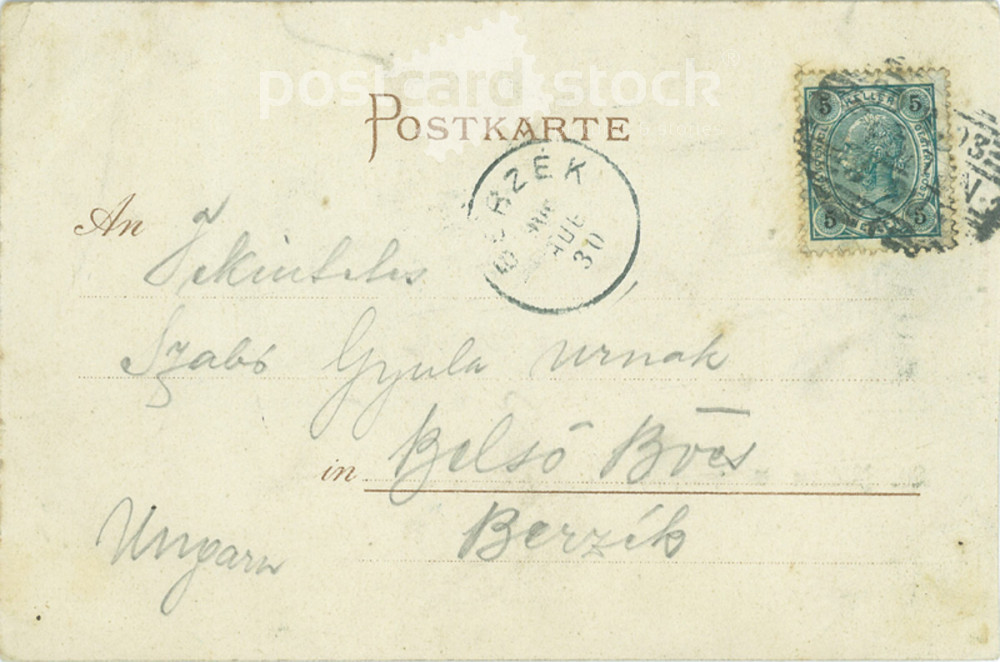 postcard stock
POSTKARTE
BERZÉK
AUG
30
5 HELLER 5
5 5
An
Tekintetes
Szabó Gyula urnak
in Belső Bőcs
Berzék
Ungarn